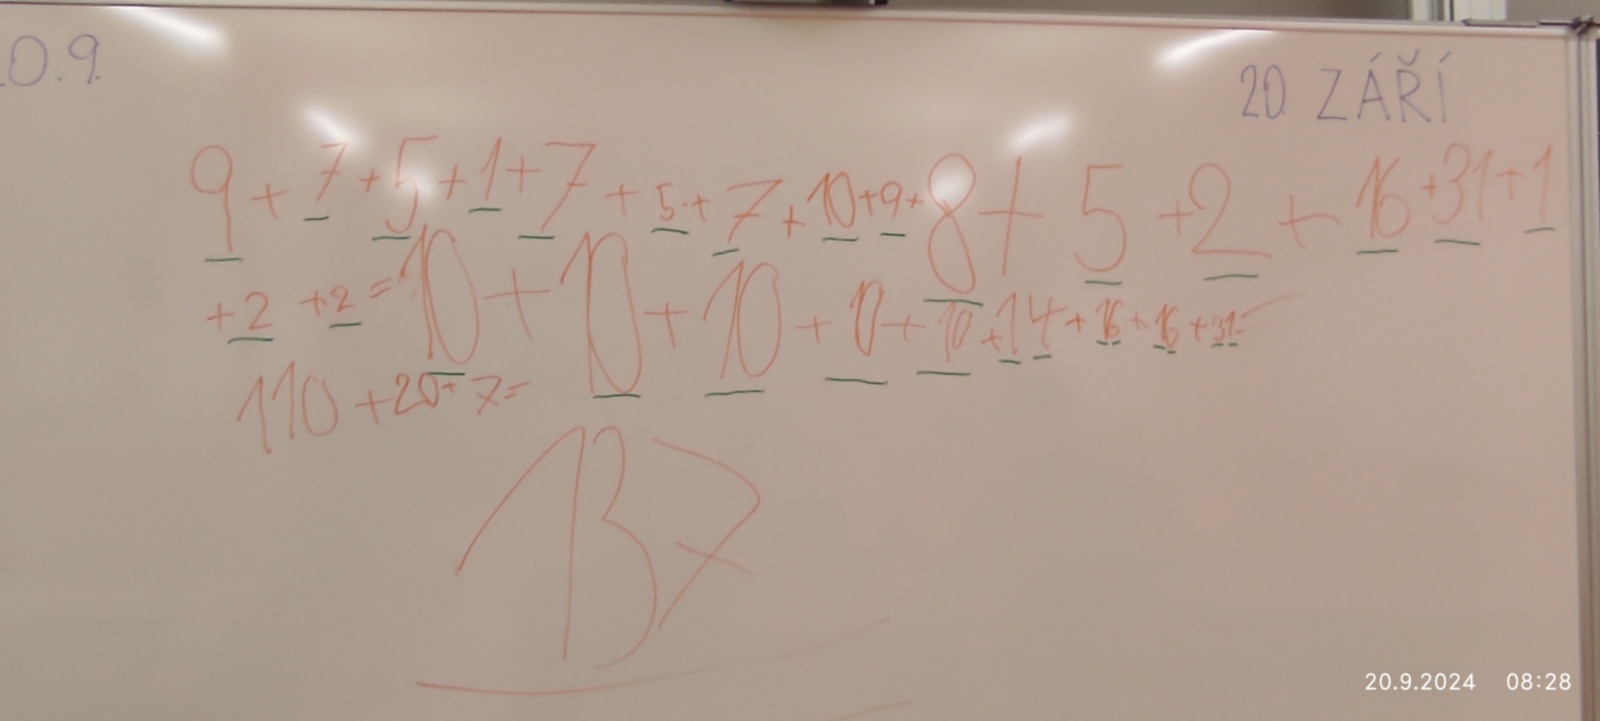 0.9.
20 ZÁŘÍ
9+7+5+1+7+5+7+10+9+8+5+2+16+31+1
+2+2=10+10+10+10+10+14+16+16+31=
110+20+7=
137
20.9.2024 08:28